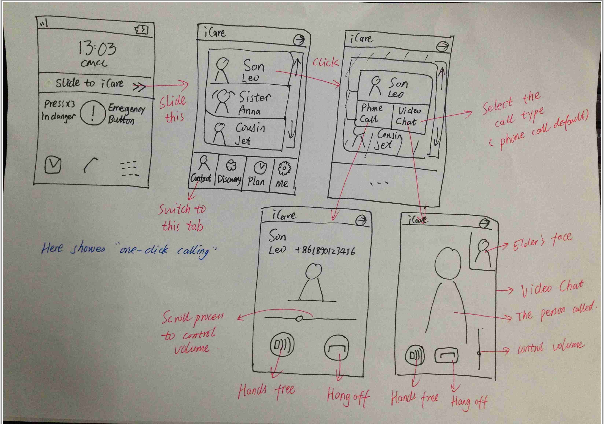 13:03
cmcc
Slide to iCare >>
Press x3
In danger
!
Emergency
Button
Slide
this
iCare
Son
Leo
Sister
Anna
Cousin
Jet
Contact
Discovery
Plan
Me
Switch to
this tab
click
iCare
Son
Leo
Phone
Call
Video
Chat
Cousin
Jet
...
Select the
call type
(phone call default)
Here showes "one-click calling"
iCare
Son
Leo
Scroll process
to control
volume
Hands free
Hang off
iCare
Elder's face
Video Chat
The person called
control volume
Hands free
Hang off